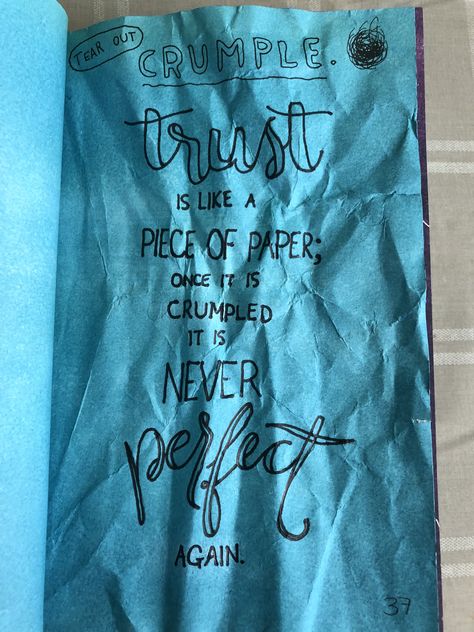 TEAR OUT
CRUMPLE.
trust
IS LIKE A
PIECE OF PAPER;
ONCE IT IS
CRUMPLED
IT IS
NEVER
perfect
AGAIN.
37